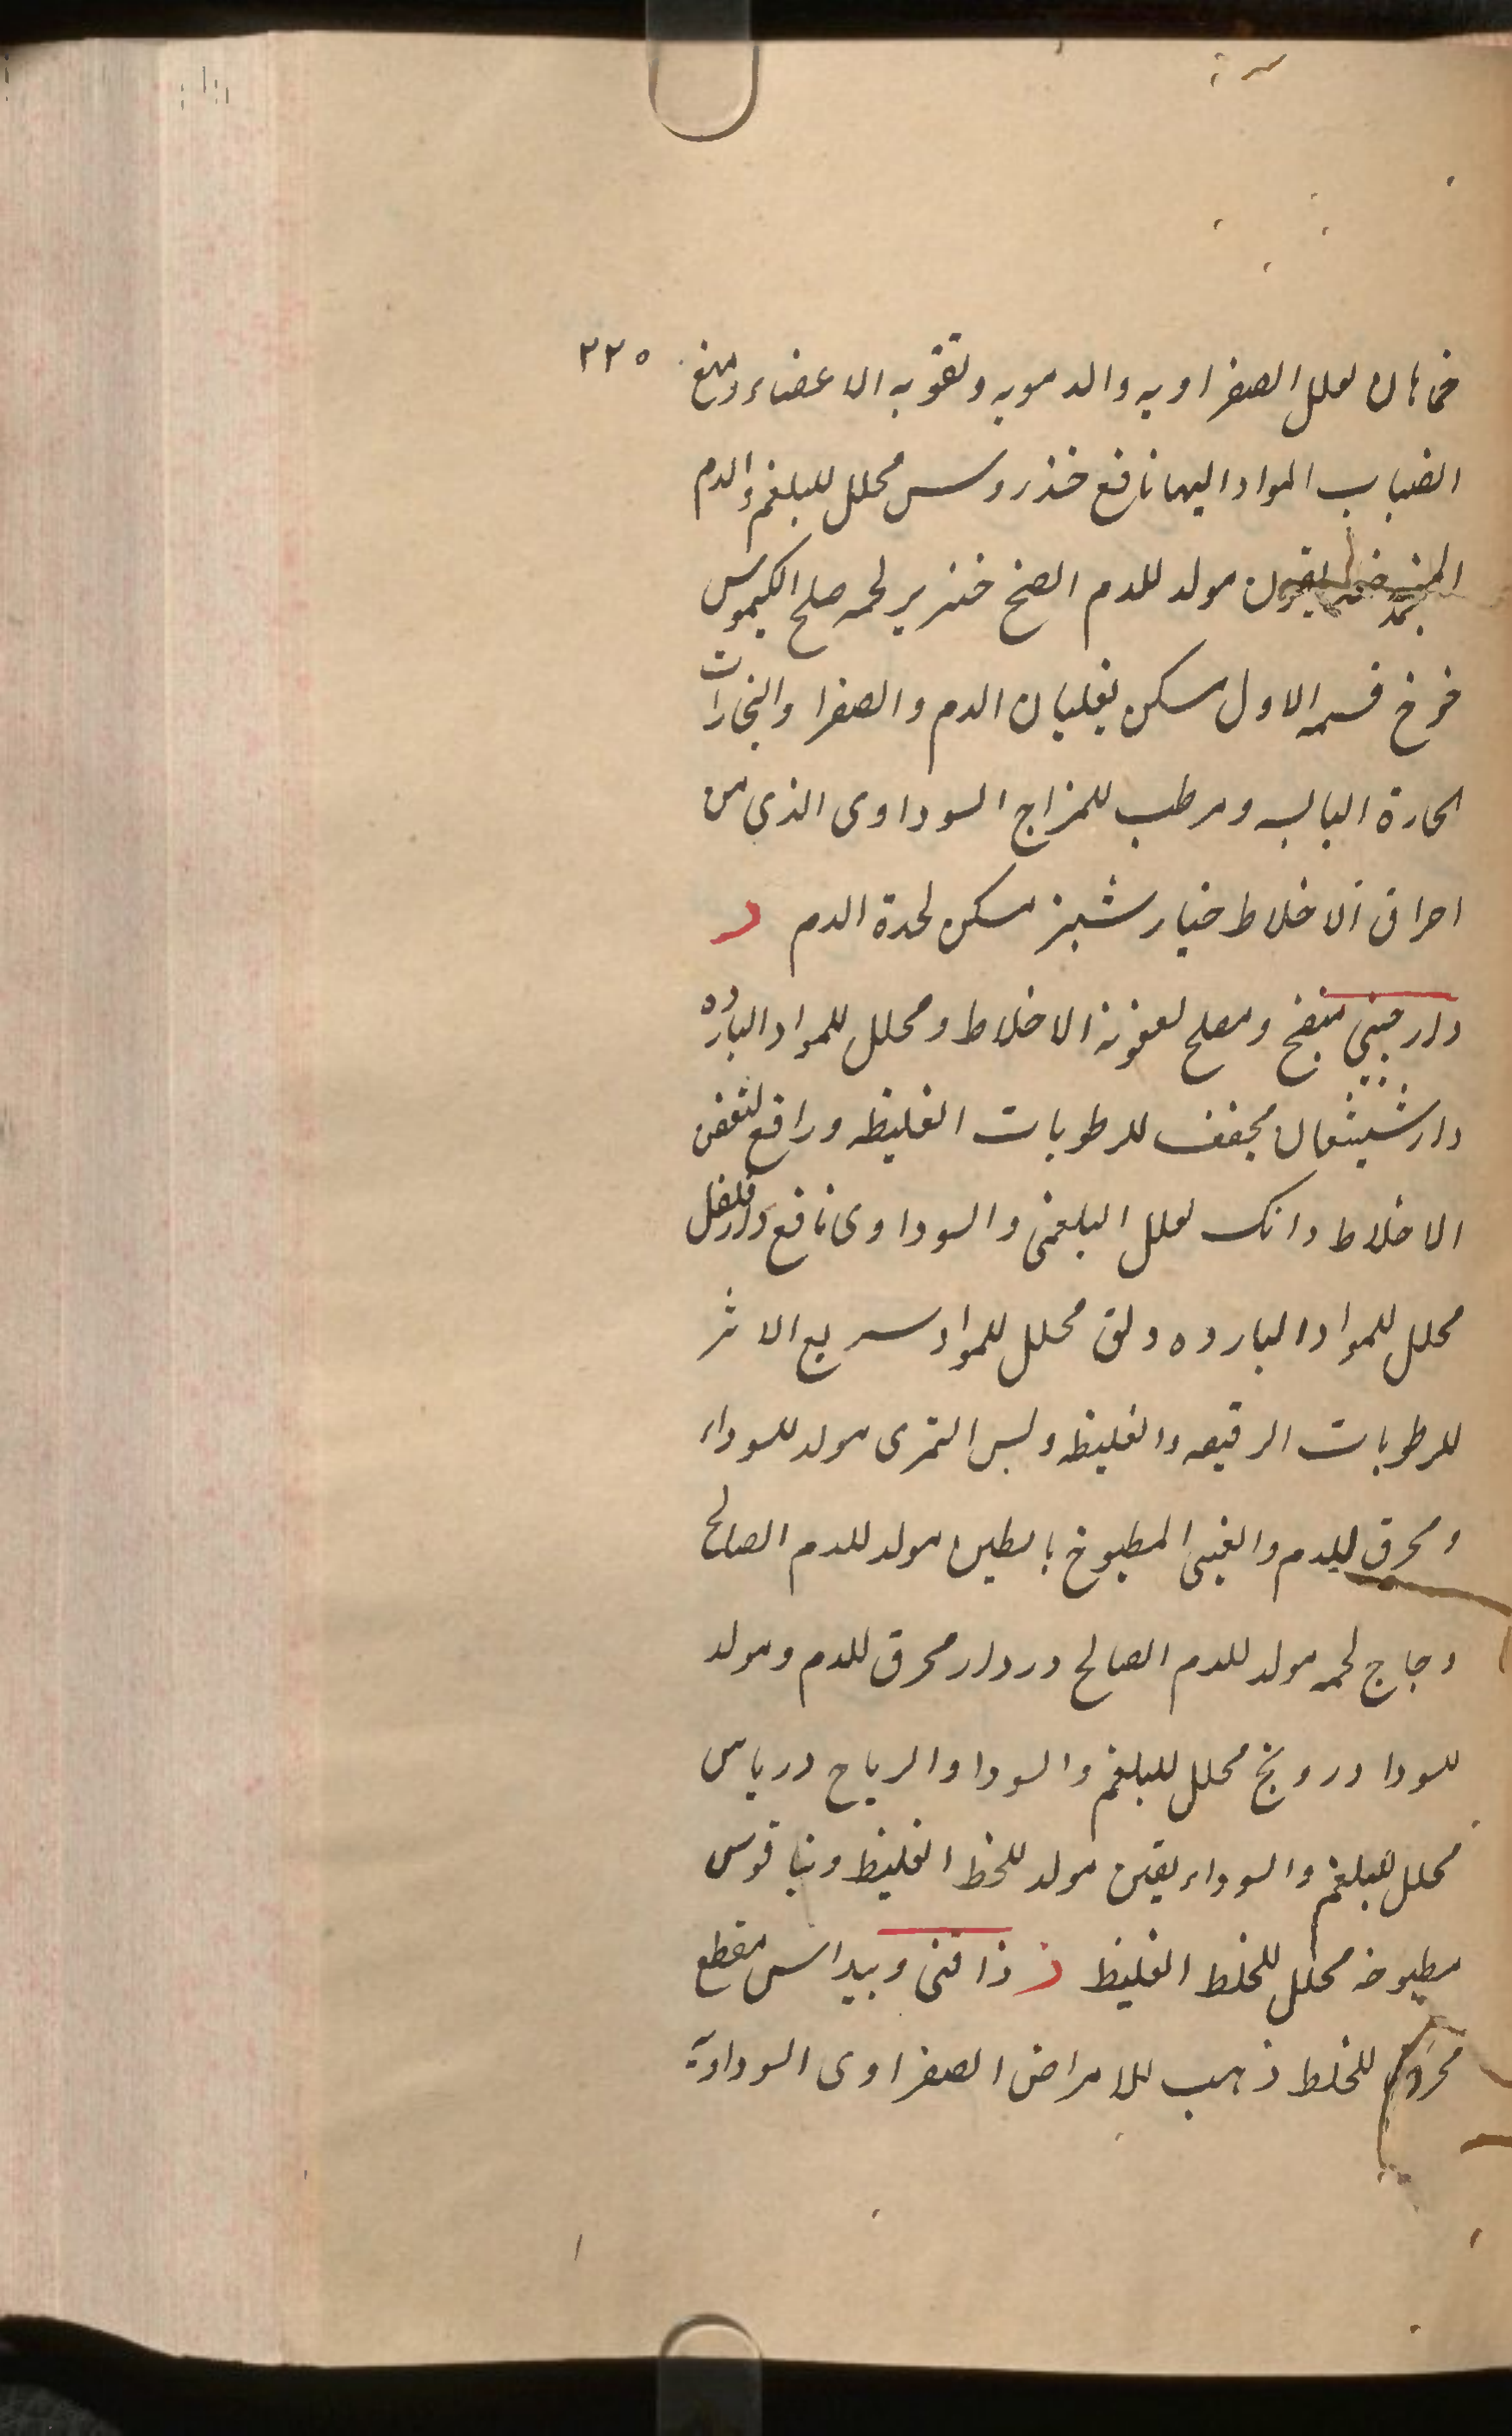 ٢٢٥
خماهان لعلل الصفراويه والدمويه وتقويه الاعضاء ومنع
انصباب المواد اليها نافع خندروس محلل للبلغم والدم
المنجمد مولد للدم الصح خنزير لحمه صلح الكيموس
خوخ قسمه الاول مسكن لغليان الدم والصفرا والبخارات
الحارة اليابسه ومرطب للمزاج السوداوى الذى من
احراق الاخلاط خيارشنبر مسكن لحدة الدم د
دارچينى منضج ومصلح لعفونة الاخلاط ومحلل للمواد البارده
دارشيشعان مجفف للرطوبات الغليظه ورافع لتعفن
الاخلاط دانك لعلل البلغمى والسوداوى نافع دارفلفل
محلل للمواد البارده دلق محلل للمواد سريع الاثر
للرطوبات الرقيقه والغليظه دبس التمرى مولد للسوداء
ومحرق للدم والعنبى المطبوخ بالطين مولد للدم الصالح
دجاج لحمه مولد للدم الصالح دردار محرق للدم ومولد
للسودا درونج محلل للبلغم والسودا والرياح درياس
محلل للبلغم والسوداء مولد للخط الغليظ دنياقوس
مطبوخه محلل للخلط الغليظ ذ ذافنى وبيداس مقطع
للخلط ذهب للامراض الصفراوى السوداوية